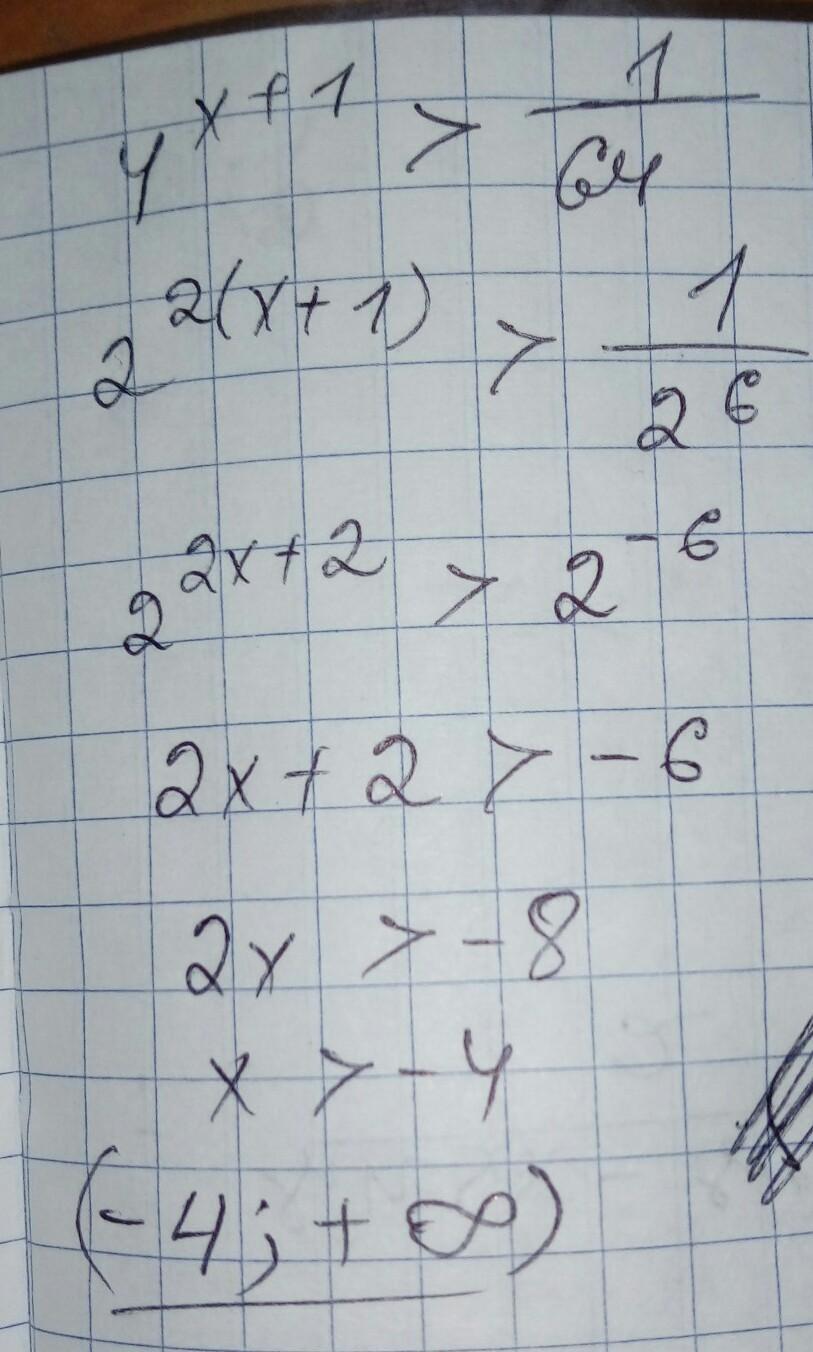 4^{x+1} > \frac{1}{64}
2^{2(x+1)} > \frac{1}{2^6}
2^{2x+2} > 2^{-6}
2x+2 > -6
2x > -8
x > -4
(-4; +∞)